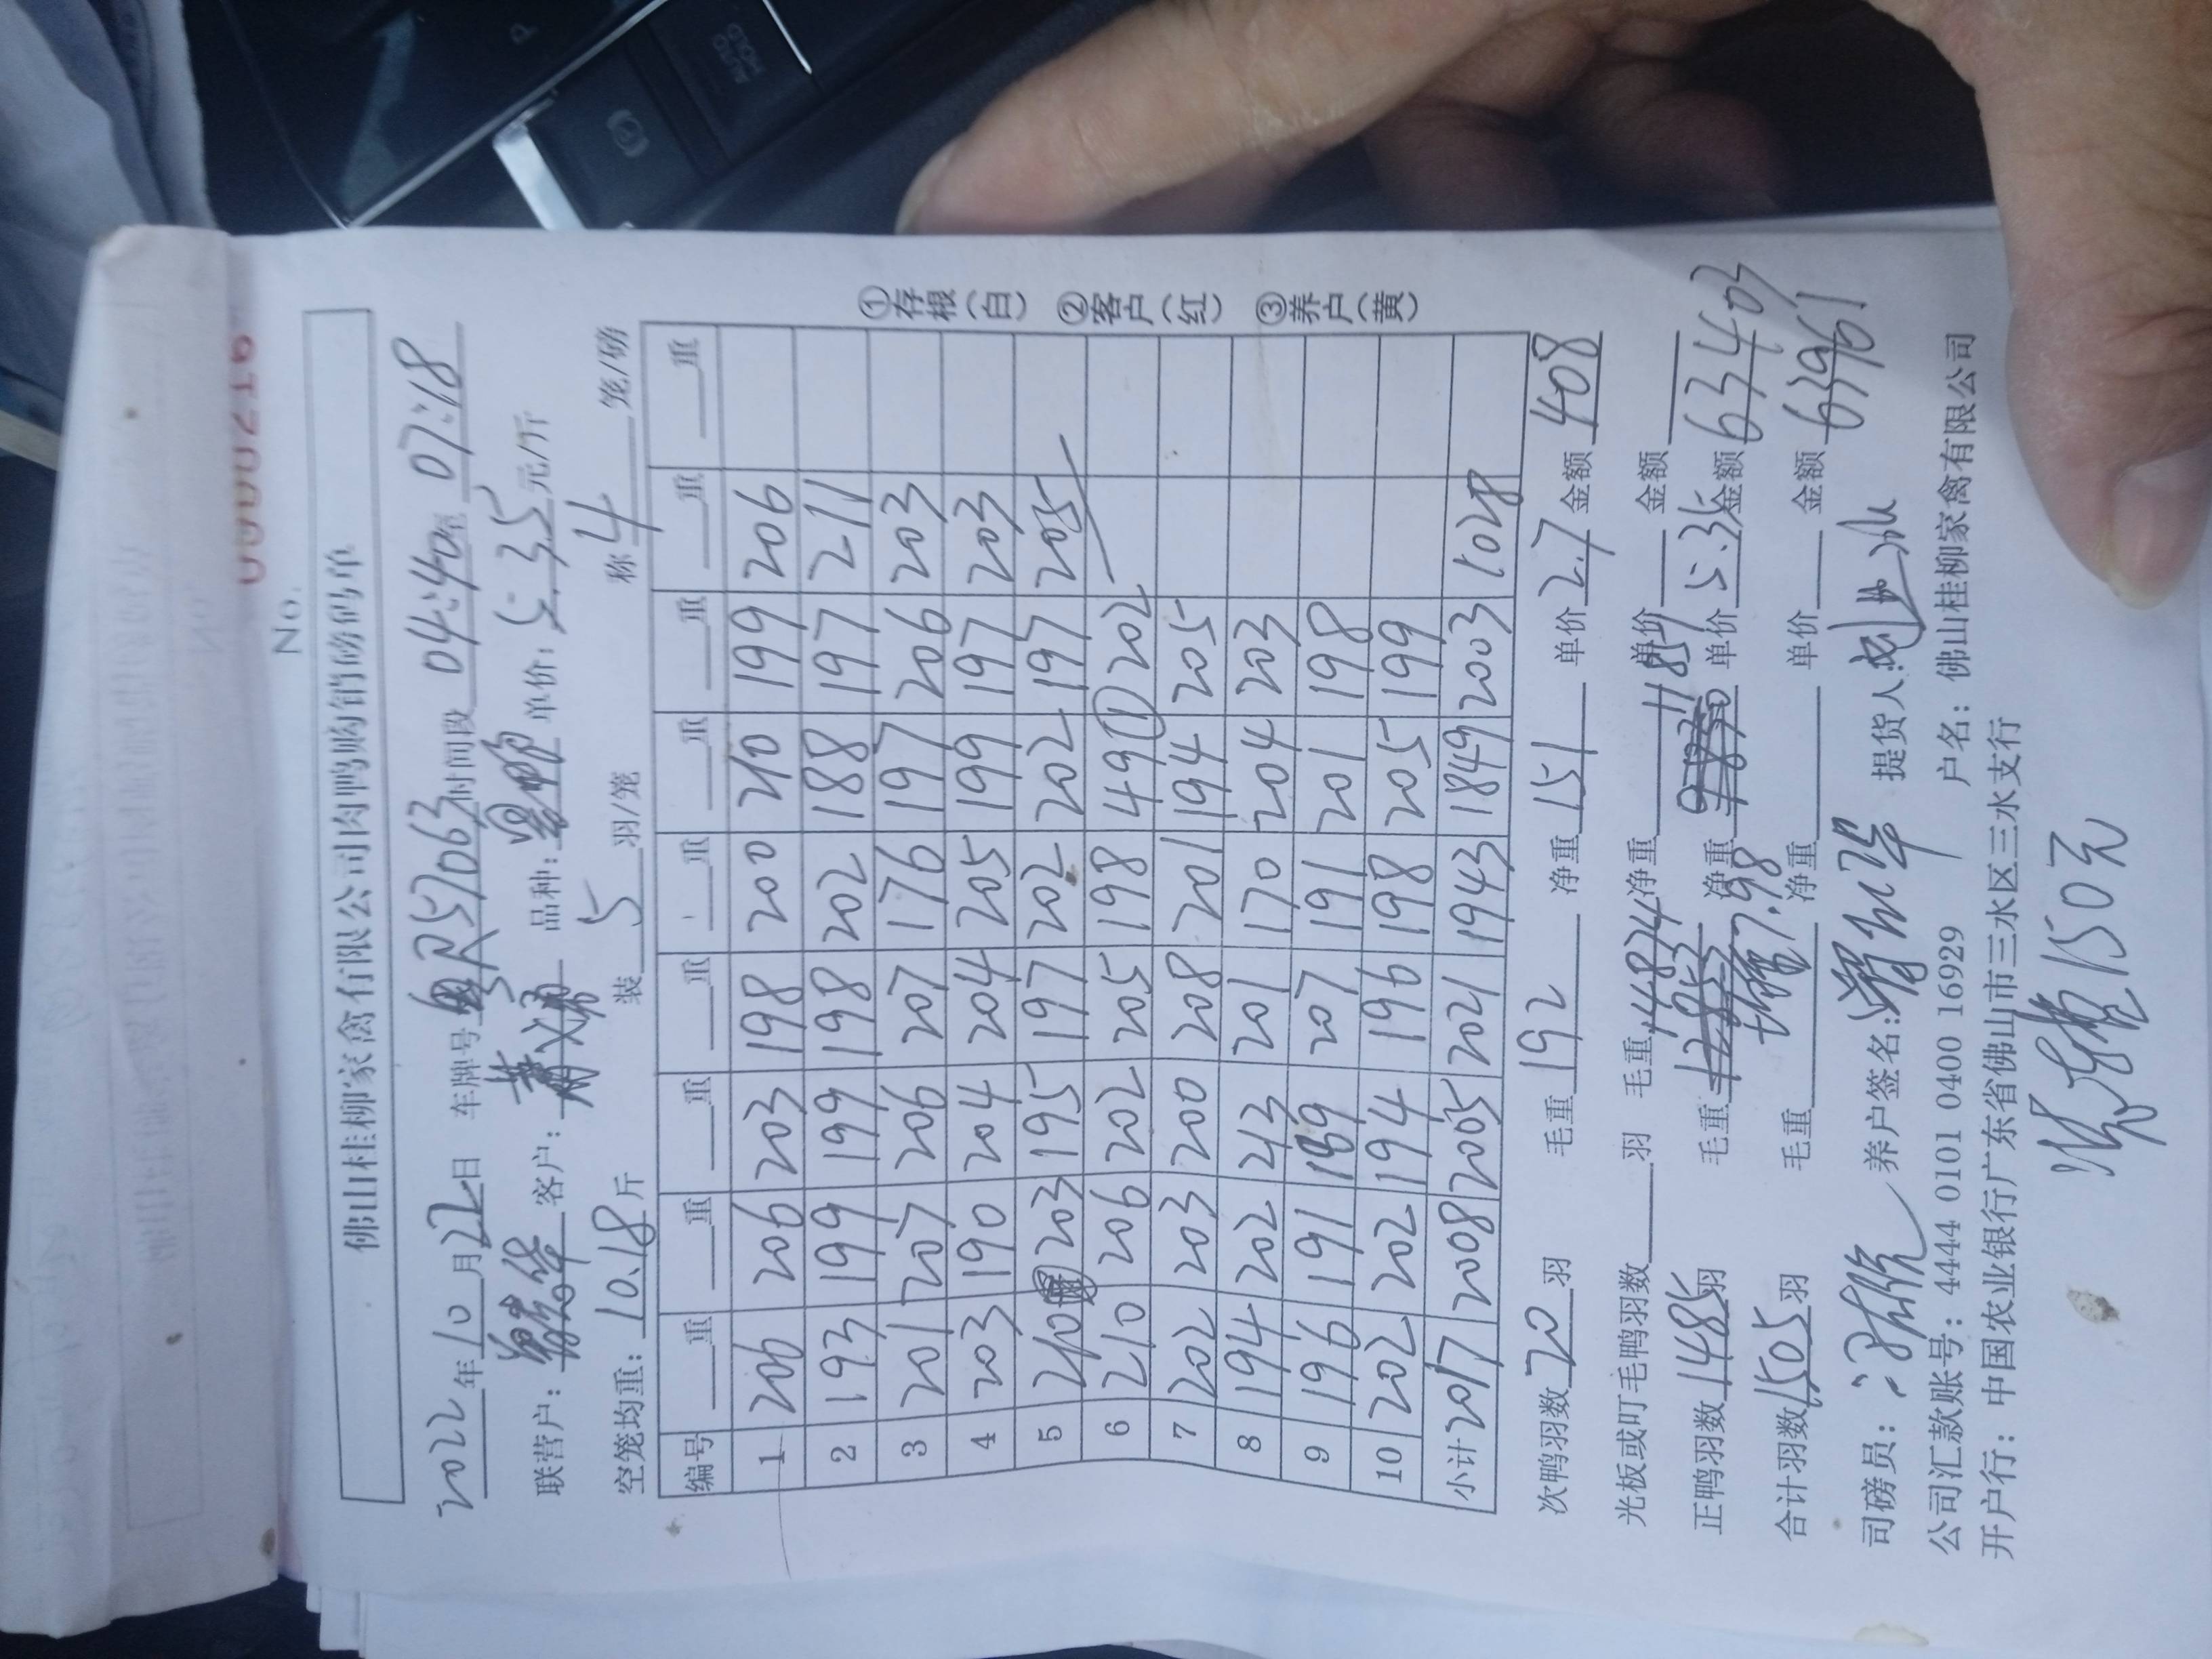 No. 0000219
佛山桂柳家禽有限公司肉鸭购销磅码单
2022年10月22日 车牌号粤R57063时间段04:40至07:18
联营户: 客户: 品种: 单价:5.35元/斤
空笼均重:10.18斤 装5羽/笼 称4笼/磅
编号 重 重 重 重 重 重 重 重 重
1 206 206 203 198 200 210 199 206
2 193 199 199 198 202 188 197 211
3 201 207 206 207 176 197 206 203
4 203 190 204 204 205 199 197 203
5 210 203 195 197 202 202 197 205
6 210 206 202 205 198 49① 202
7 202 203 200 208 201 194 205
8 194 202 213 201 170 204 203
9 196 191 189 207 191 201 198
10 202 202 194 196 198 205 199
小计 2017 2008 2005 2021 1943 1849 2003 1028
①存根(白) ②客户(红) ③养户(黄)
次鸭羽数20羽 毛重192 净重151 单价2.7 金额408
光板或叮毛鸭羽数 羽 毛重14874净重 单价 金额
正鸭羽数1485羽 毛重 净重11851 单价5.35金额63403
合计羽数1505羽 毛重 7.98 净重 单价 金额63961
司磅员: 养户签名: 提货人:
公司汇款账号:4444 0101 0400 16929 户名:佛山桂柳家禽有限公司
开户行:中国农业银行广东省佛山市三水区三水支行
150元